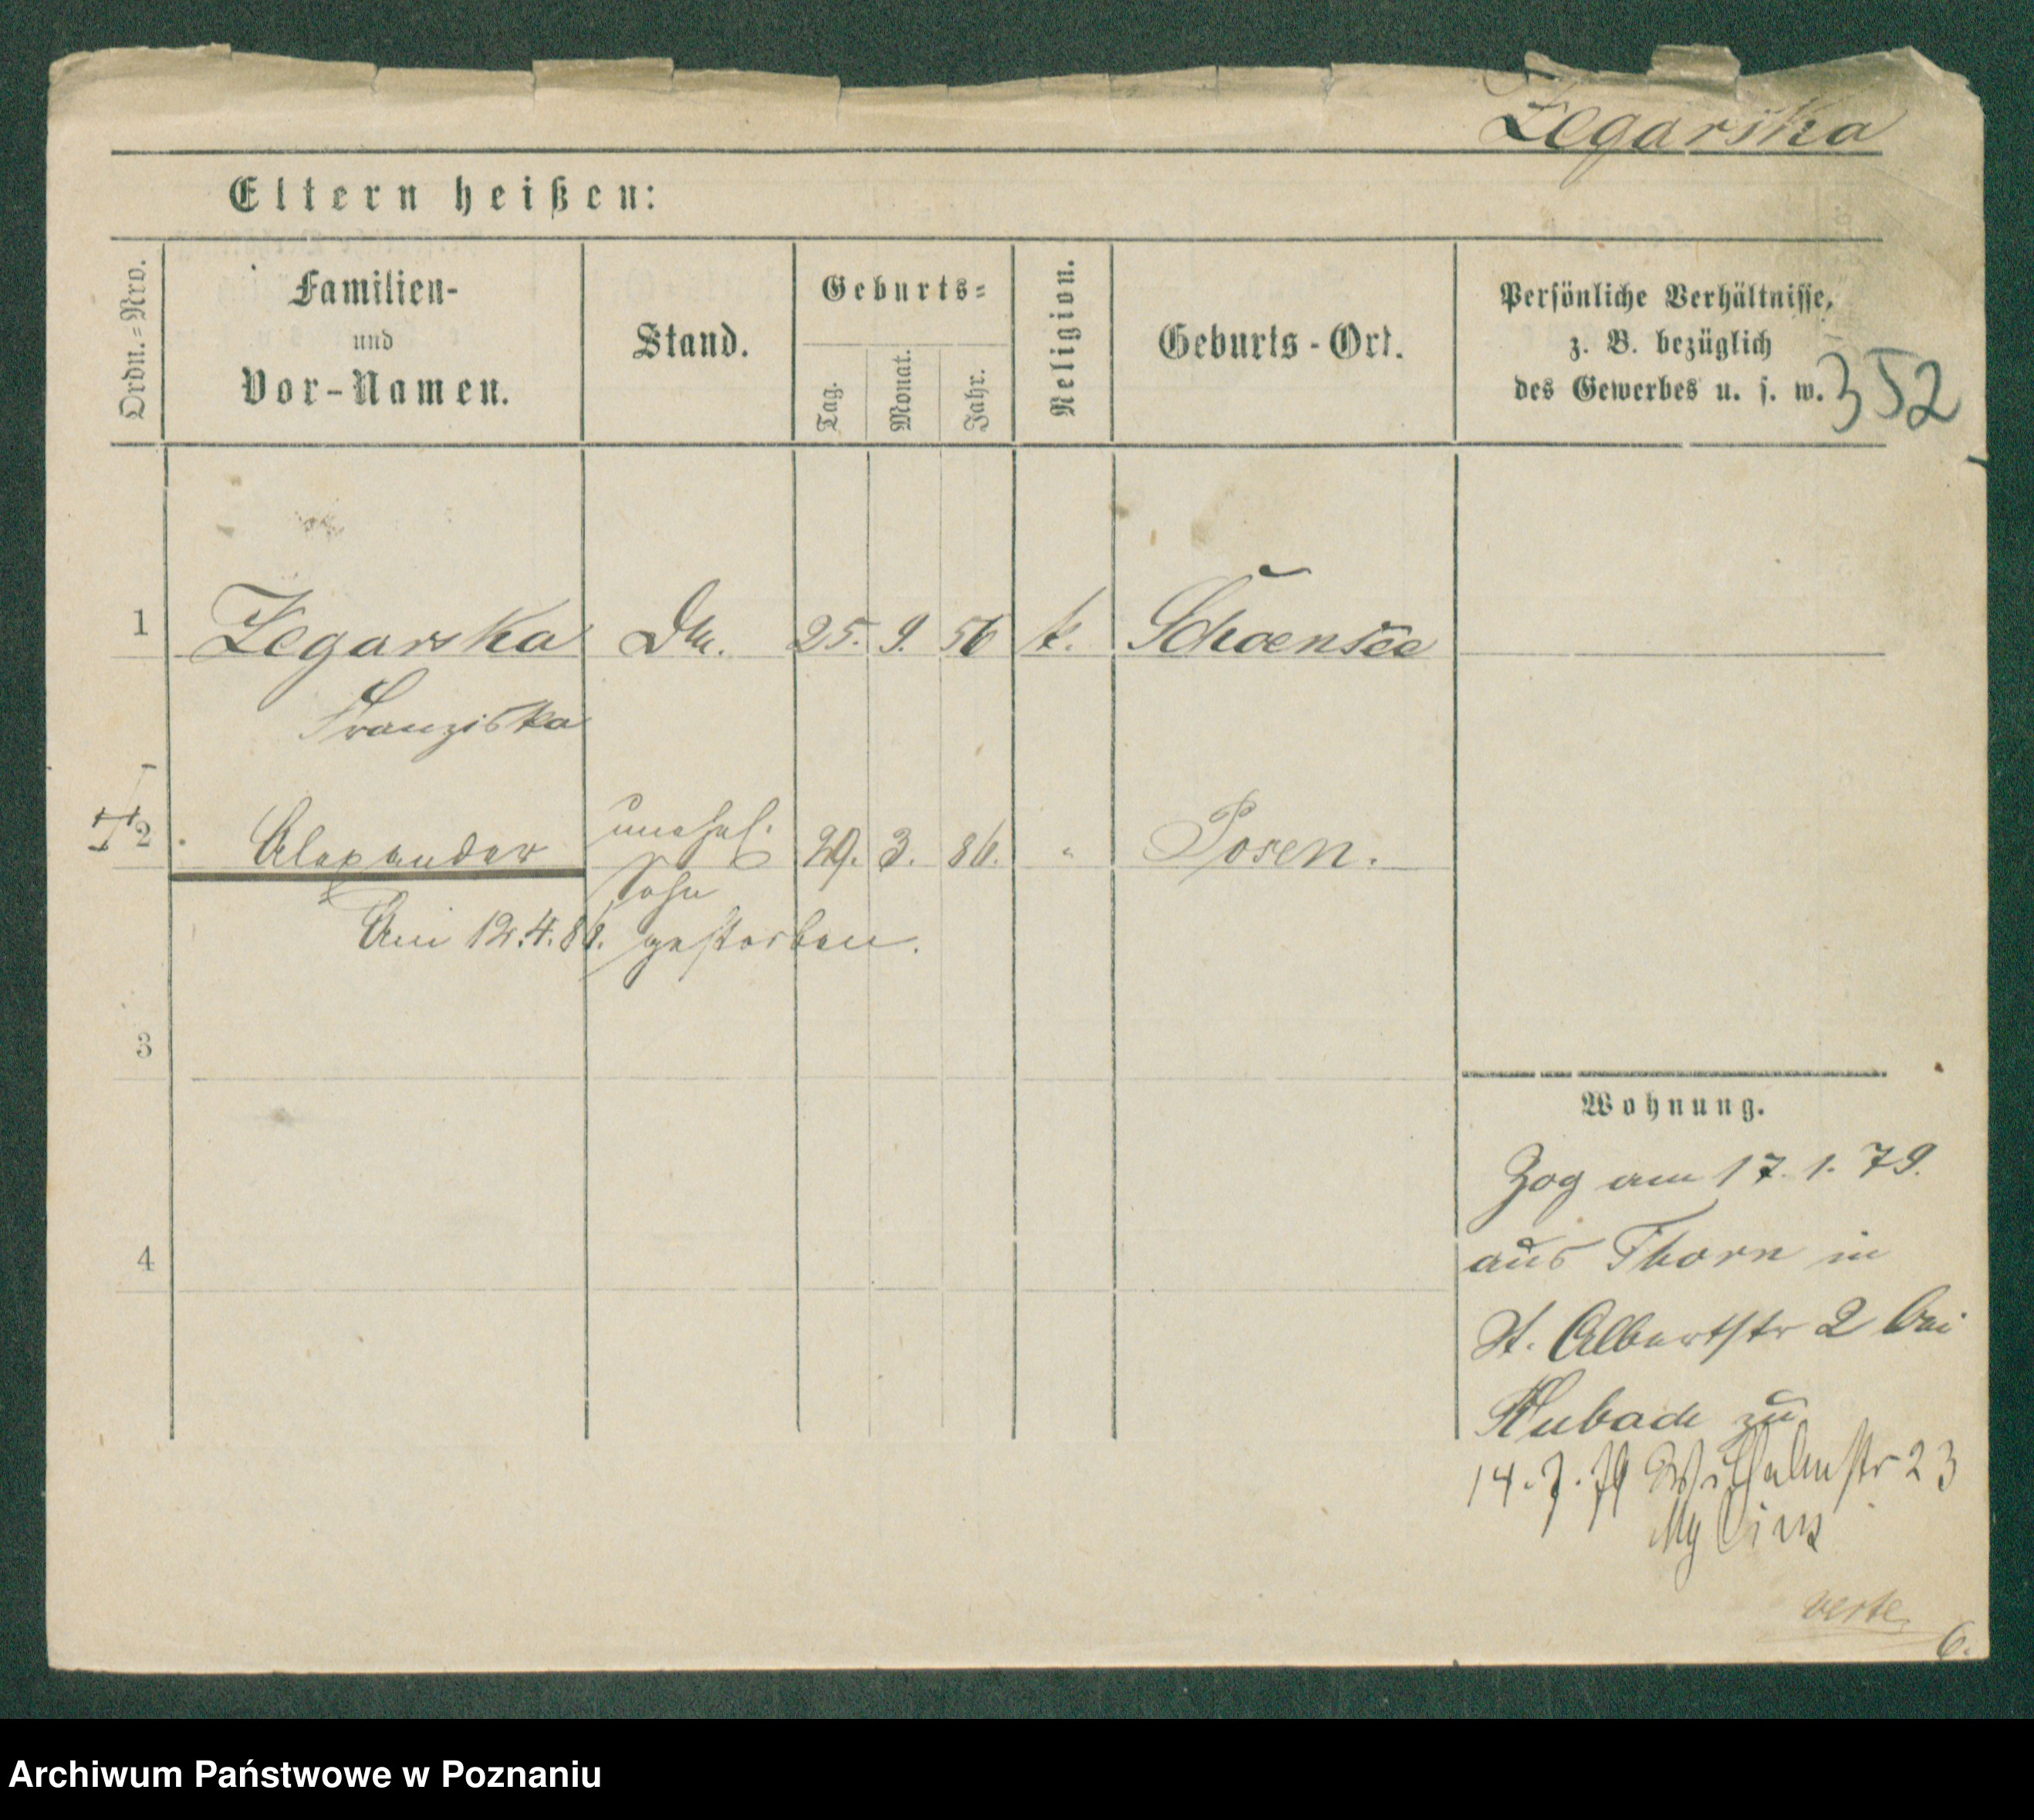 Zegarska
Eltern heißen:
Ordn.=Nro.
Familien-
und
Vor-Namen.
Stand.
Geburts=
Tag.
Monat.
Jahr.
Religion.
Geburts-Ort.
Persönliche Verhältnisse,
z. B. bezüglich
des Gewerbes u. s. w.
352
1 Zegarska 25. 9. 56 k. Schoensee
Franziska
2 Alexander unehel. 29. 3. 86. " Posen.
Sohn
Am 12.4.86. gestorben.
3
4
Wohnung.
Zog am 17. 1. 79.
aus Thorn in
St. Albertstr 2 bei
zu
14.7.79 Wilhelmstr 23
Mylius
verte
6.
Archiwum Państwowe w Poznaniu